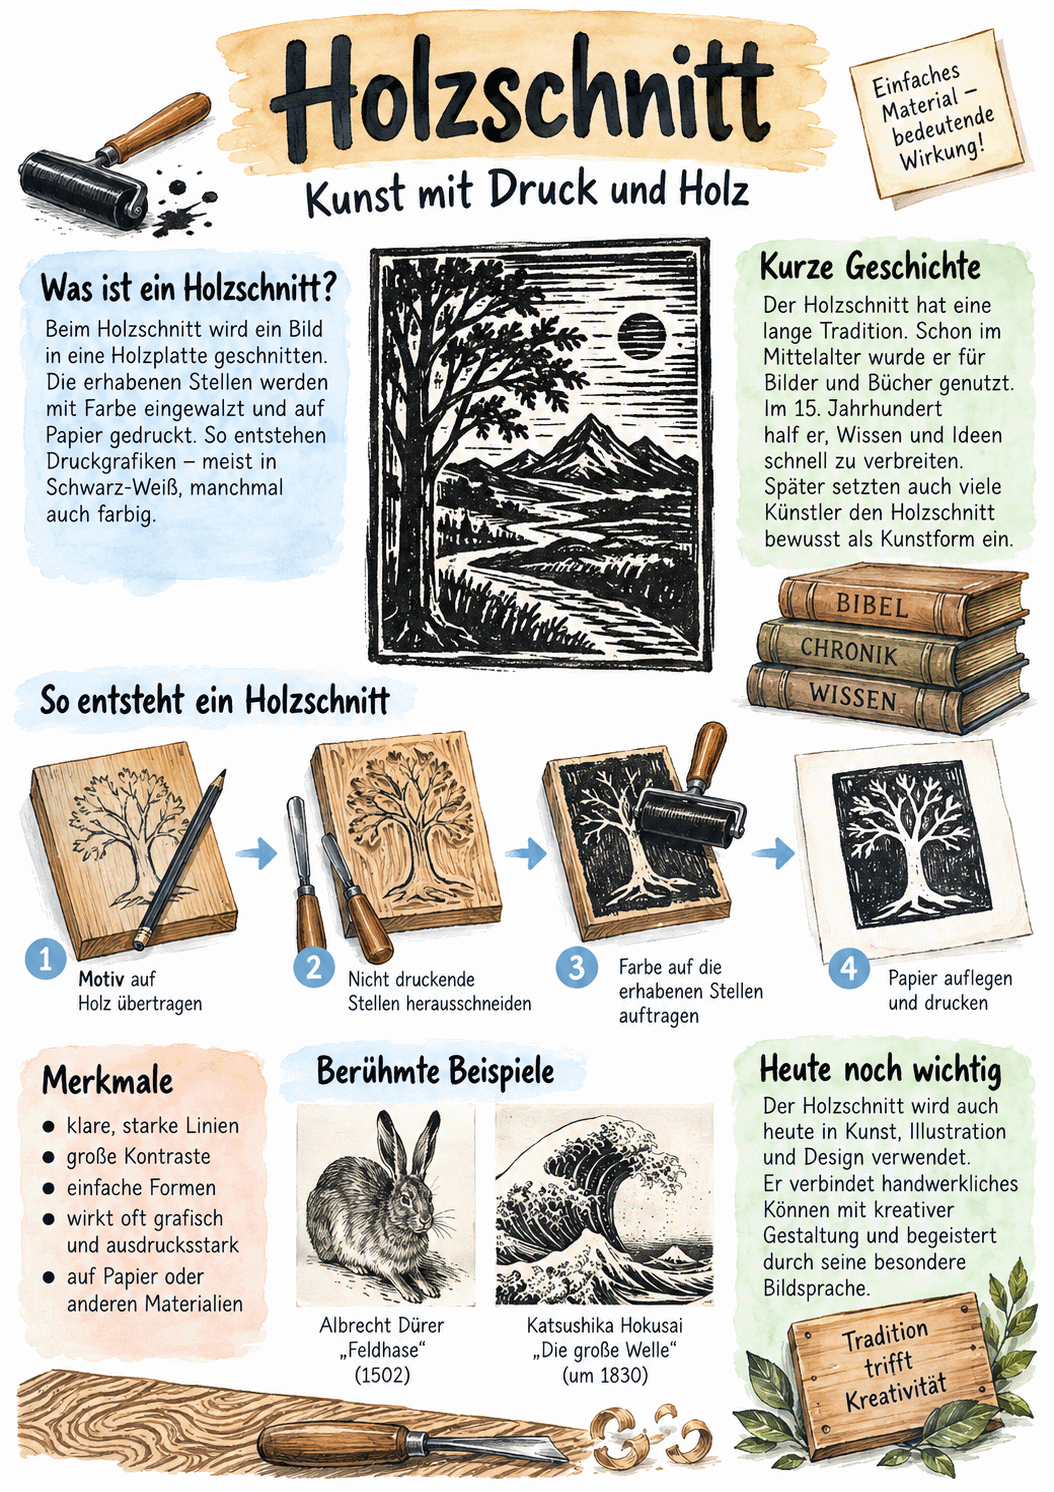 Holzschnitt
Kunst mit Druck und Holz
Einfaches
Material –
bedeutende
Wirkung!
Was ist ein Holzschnitt?
Beim Holzschnitt wird ein Bild
in eine Holzplatte geschnitten.
Die erhabenen Stellen werden
mit Farbe eingewalzt und auf
Papier gedruckt. So entstehen
Druckgrafiken – meist in
Schwarz-Weiß, manchmal
auch farbig.
Kurze Geschichte
Der Holzschnitt hat eine
lange Tradition. Schon im
Mittelalter wurde er für
Bilder und Bücher genutzt.
Im 15. Jahrhundert
half er, Wissen und Ideen
schnell zu verbreiten.
Später setzten auch viele
Künstler den Holzschnitt
bewusst als Kunstform ein.
BIBEL
CHRONIK
WISSEN
So entsteht ein Holzschnitt
1
Motiv auf
Holz übertragen
2
Nicht druckende
Stellen herausschneiden
3
Farbe auf die
erhabenen Stellen
auftragen
4
Papier auflegen
und drucken
Merkmale
● klare, starke Linien
● große Kontraste
● einfache Formen
● wirkt oft grafisch
und ausdrucksstark
● auf Papier oder
anderen Materialien
Berühmte Beispiele
Albrecht Dürer
„Feldhase“
(1502)
Katsushika Hokusai
„Die große Welle“
(um 1830)
Heute noch wichtig
Der Holzschnitt wird auch
heute in Kunst, Illustration
und Design verwendet.
Er verbindet handwerkliches
Können mit kreativer
Gestaltung und begeistert
durch seine besondere
Bildsprache.
Tradition
trifft
Kreativität